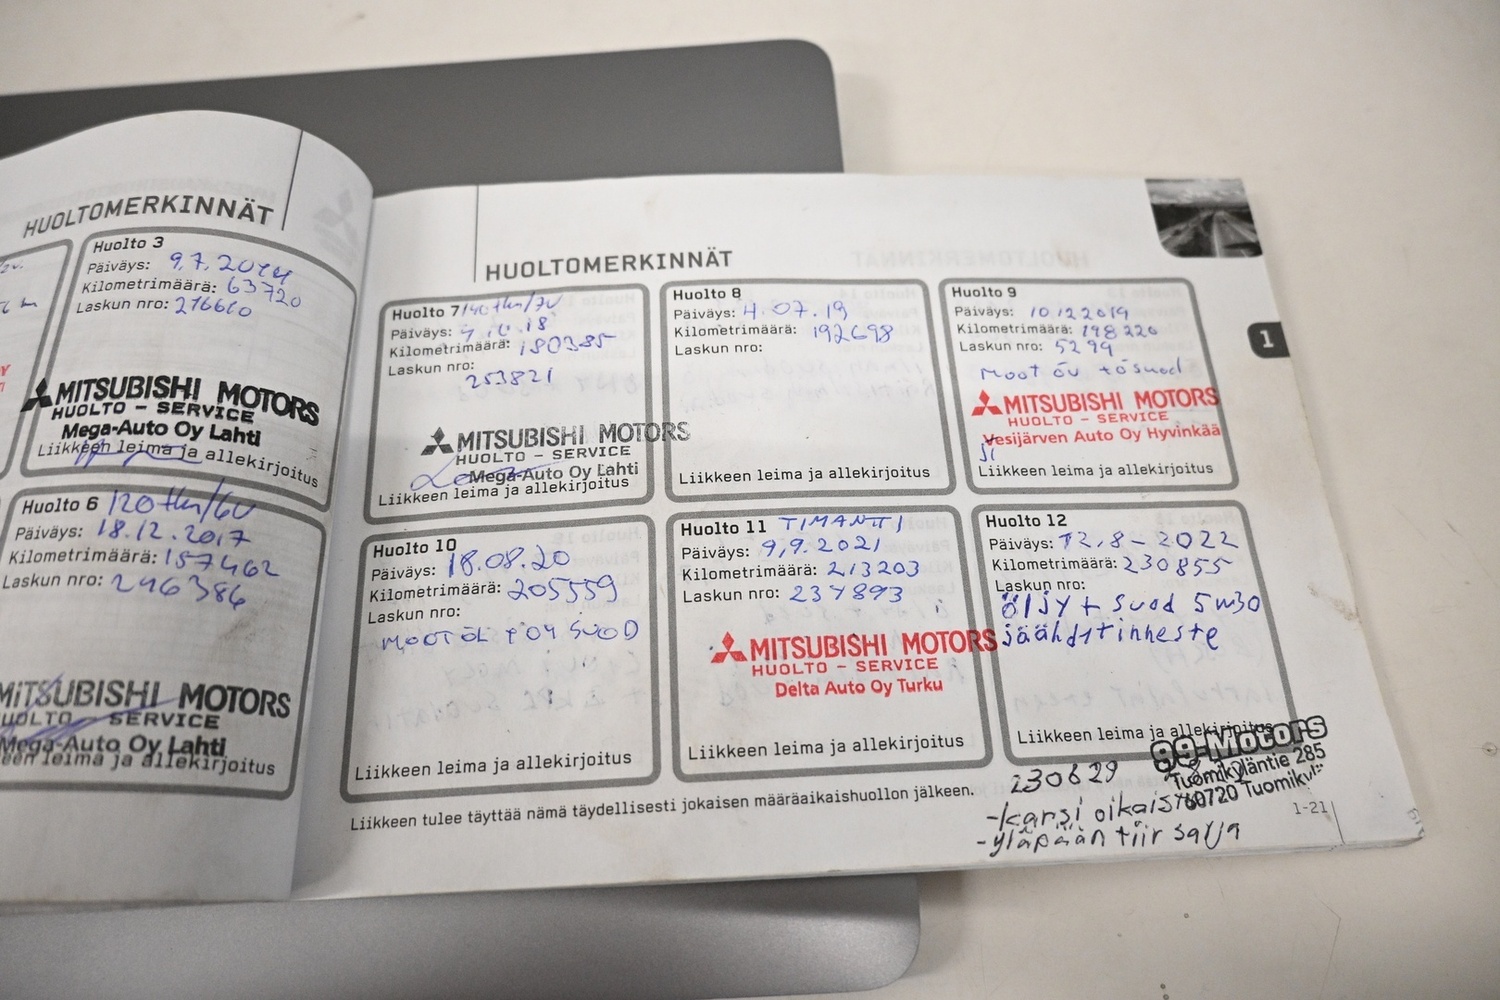 HUOLTOMERKINNÄT
Huolto 3
Päiväys: 9.7.2014
Kilometrimäärä: 63720
Laskun nro: 216610
MITSUBISHI MOTORS
HUOLTO - SERVICE
Mega-Auto Oy Lahti
Liikkeen leima ja allekirjoitus
Huolto 6 120 tkm/6v
Päiväys: 18.12.2017
Kilometrimäärä: 157462
Laskun nro: 246386
MITSUBISHI MOTORS
HUOLTO - SERVICE
Mega-Auto Oy Lahti
leima ja allekirjoitus
HUOLTOMERKINNÄT
Huolto 7 140tkm/7v
Päiväys:
Kilometrimäärä: 180385
Laskun nro:
253821
MITSUBISHI MOTORS
HUOLTO - SERVICE
Mega-Auto Oy Lahti
Liikkeen leima ja allekirjoitus
Huolto 8
Päiväys: 4.07.19
Kilometrimäärä: 192698
Laskun nro:
Liikkeen leima ja allekirjoitus
Huolto 9
Päiväys: 10.12.2019
Kilometrimäärä: 198220
Laskun nro: 5299
MITSUBISHI MOTORS
HUOLTO - SERVICE
Vesijärven Auto Oy Hyvinkää
Liikkeen leima ja allekirjoitus
Huolto 10
Päiväys: 18.08.20
Kilometrimäärä: 205559
Laskun nro:
MOOTÖL + ÖY SUOD
Liikkeen leima ja allekirjoitus
Huolto 11 TIMANTTI
Päiväys: 9,9.2021
Kilometrimäärä: 213203
Laskun nro: 237893
MITSUBISHI MOTORS
HUOLTO - SERVICE
Delta Auto Oy Turku
Liikkeen leima ja allekirjoitus
Huolto 12
Päiväys: 12.8-2022
Kilometrimäärä: 230855
Laskun nro:
öljy + suod 5w30
jäähdytinneste
Liikkeen leima ja allekirjoitus
99-Motors
Tuomikyläntie 285
60720 Tuomikylä
230629
-karsi oikaistu
-yläpään tiir sarja
Liikkeen tulee täyttää nämä täydellisesti jokaisen määräaikaishuollon jälkeen.
1-21
1